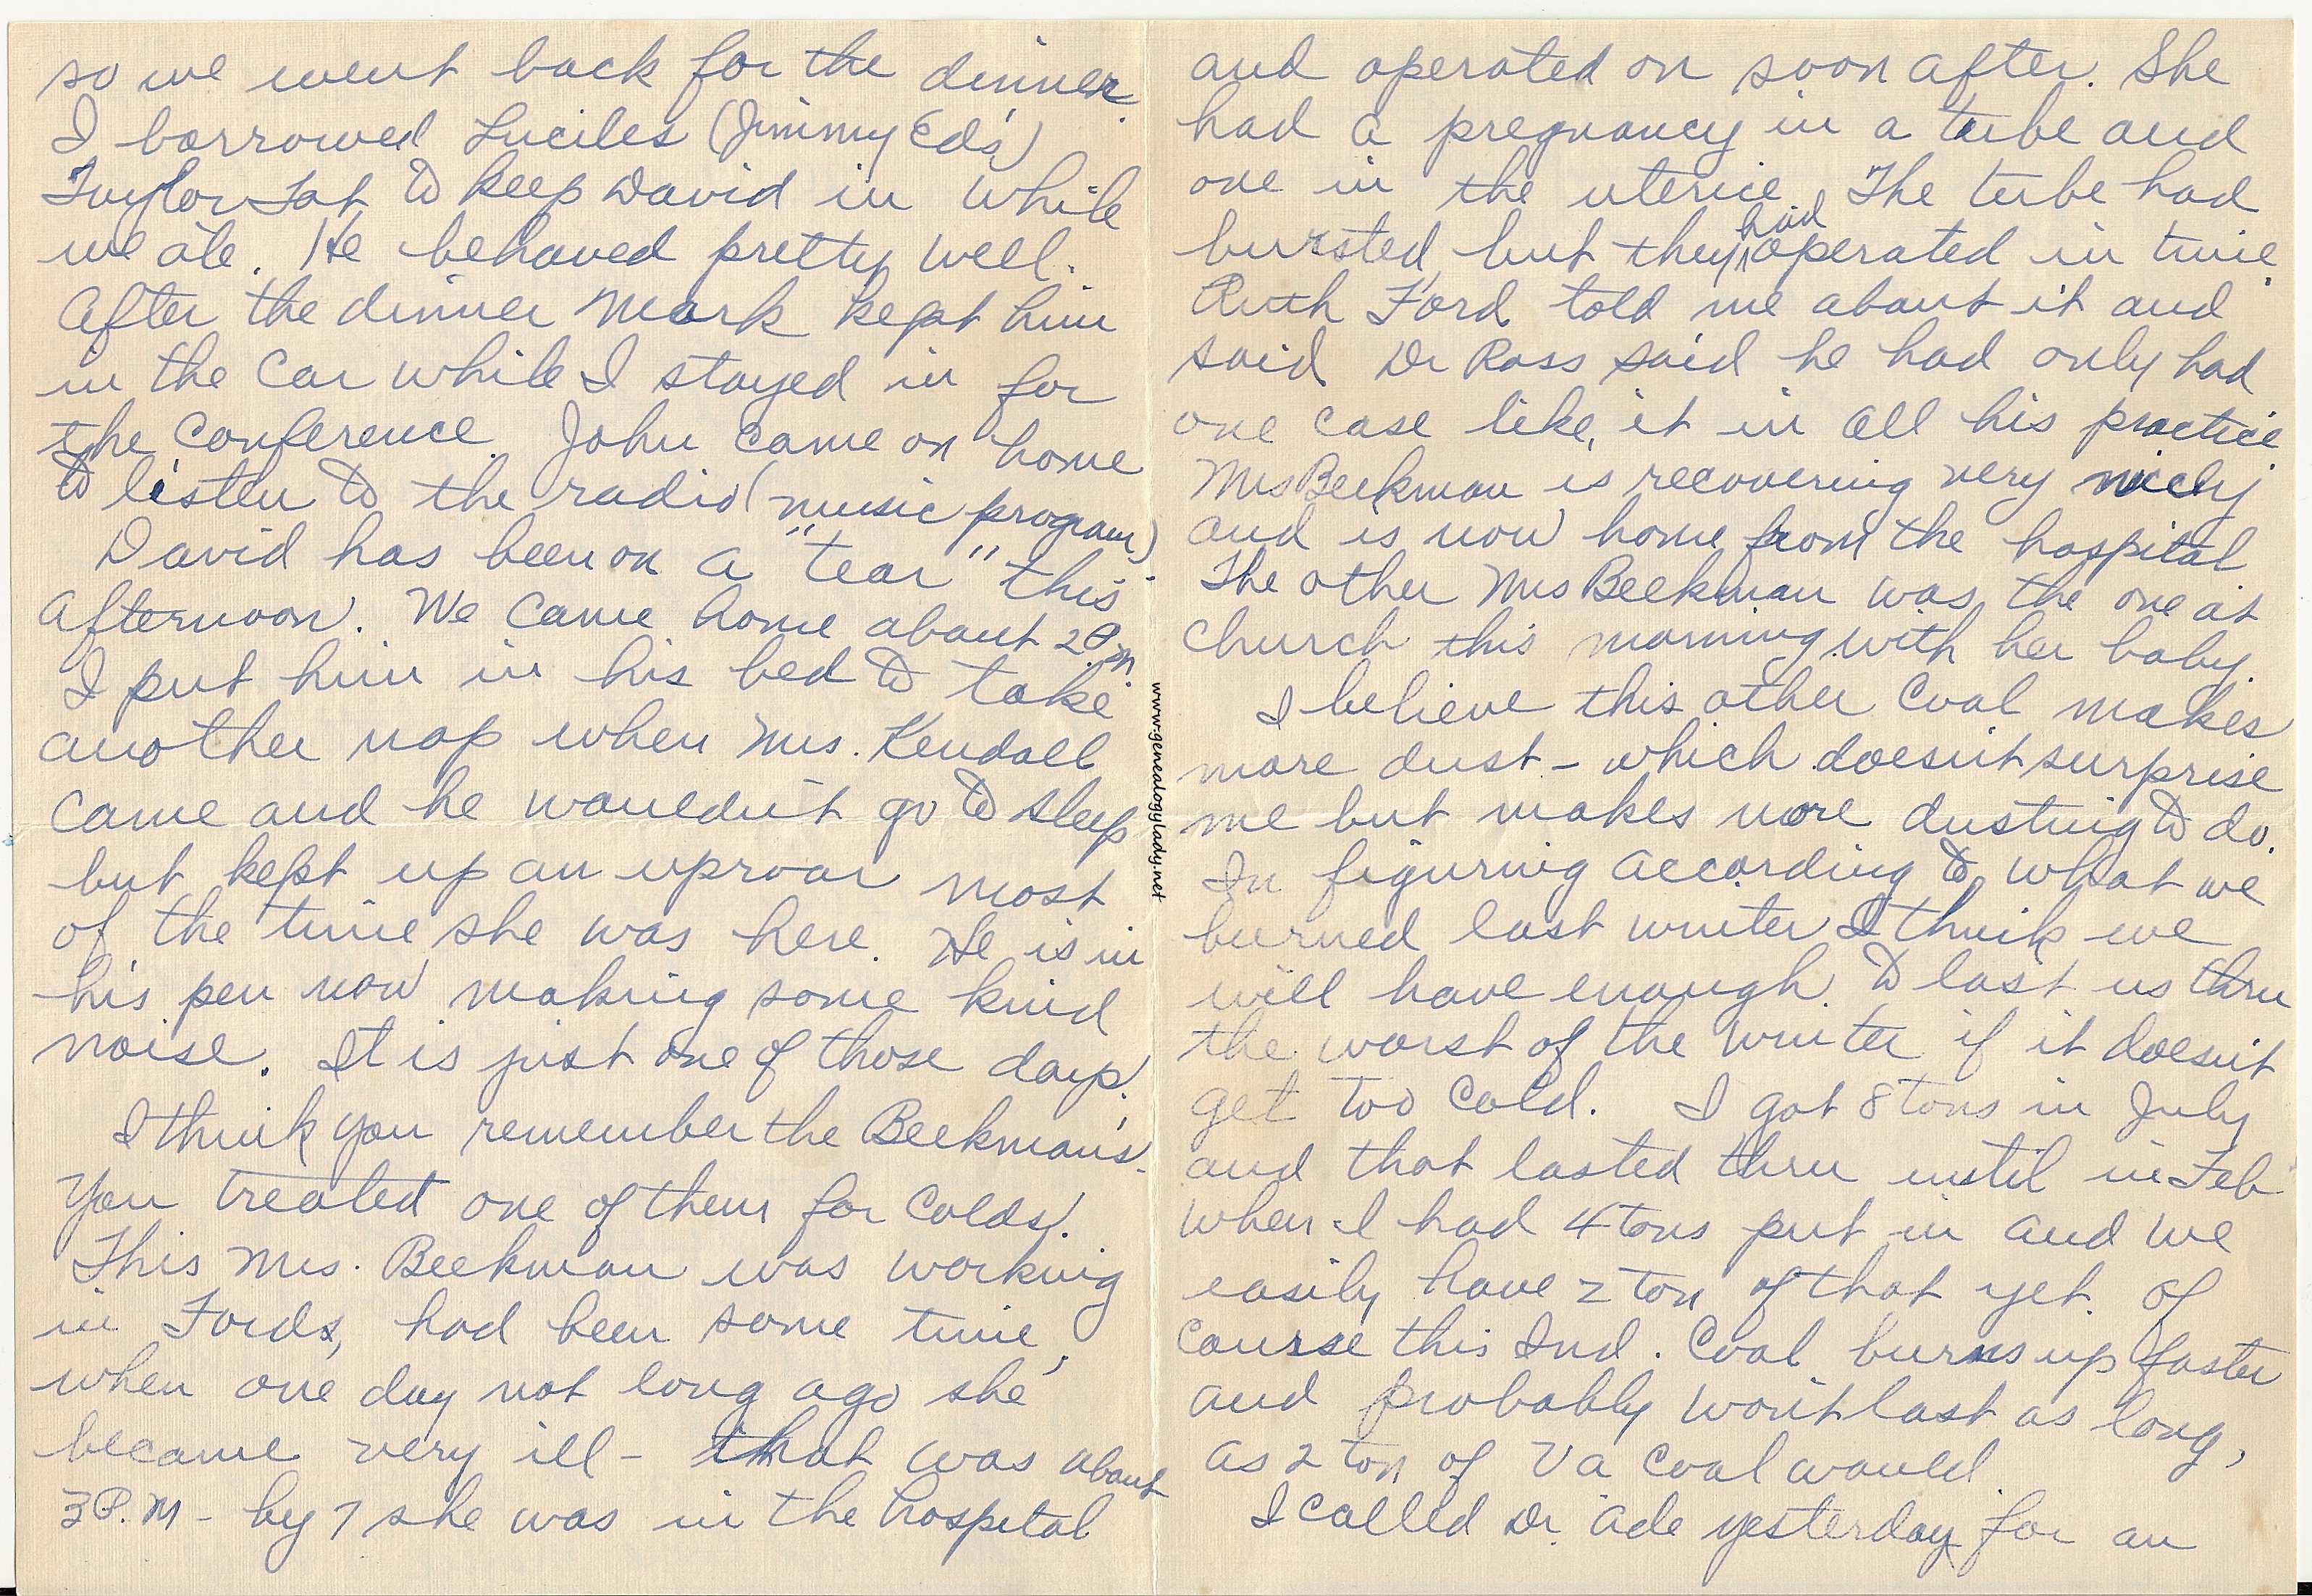 so we went back for the dinner.
I borrowed Luciles (Jimmy Ed's)
Taylor Tot to keep David in while
we ate. He behaved pretty well.
After the dinner Mark kept him
in the car while I stayed in for
the conference. John came on home
to listen to the radio (music program)
David has been on a "tear" this
afternoon. We came home about 2 P.M.
I put him in his bed to take
another nap when Mrs. Kendall
came and he wouldn't go to sleep
but kept up an uproar most
of the time she was here. He is in
his pen now making some kind
noise. It is just one of those days.
I think you remember the Beekman's.
You treated one of them for colds.
This Mrs. Beekman was working
in Fords, had been some time,
when one day not long ago she
became very ill - that was about
3 P.M - by 7 she was in the hospital
and operated on soon after. She
had a pregnancy in a tube and
one in the uterice. The tube had
bursted but they had operated in time.
Ruth Ford told me about it and
said Dr Ross said he had only had
one case like it in all his practice
Mrs Beekman is recovering very nicely
and is now home from the hospital
The other Mrs Beekman was the one at
church this morning with her baby.
I believe this other coal makes
more dust - which doesn't surprise
me but makes more dusting to do.
In figuring according to what we
burned last winter I think we
will have enough to last us thru
the worst of the winter if it doesn't
get too cold. I got 8 tons in July
and that lasted thru until in Feb
when I had 4 tons put in and we
easily have 2 ton of that yet. Of
course this Ind. Coal burns up faster
and probably won't last as long,
as 2 ton of Va Coal would
I called Dr. Ade yesterday for an
www.genealogylady.net